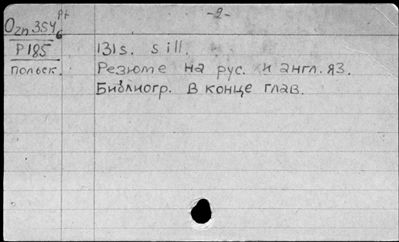 -2-
Pt
O2n354
6
P185
польск.
131s. s ill.
Резюме на рус. и англ. яз.
Библиогр. в конце глав.